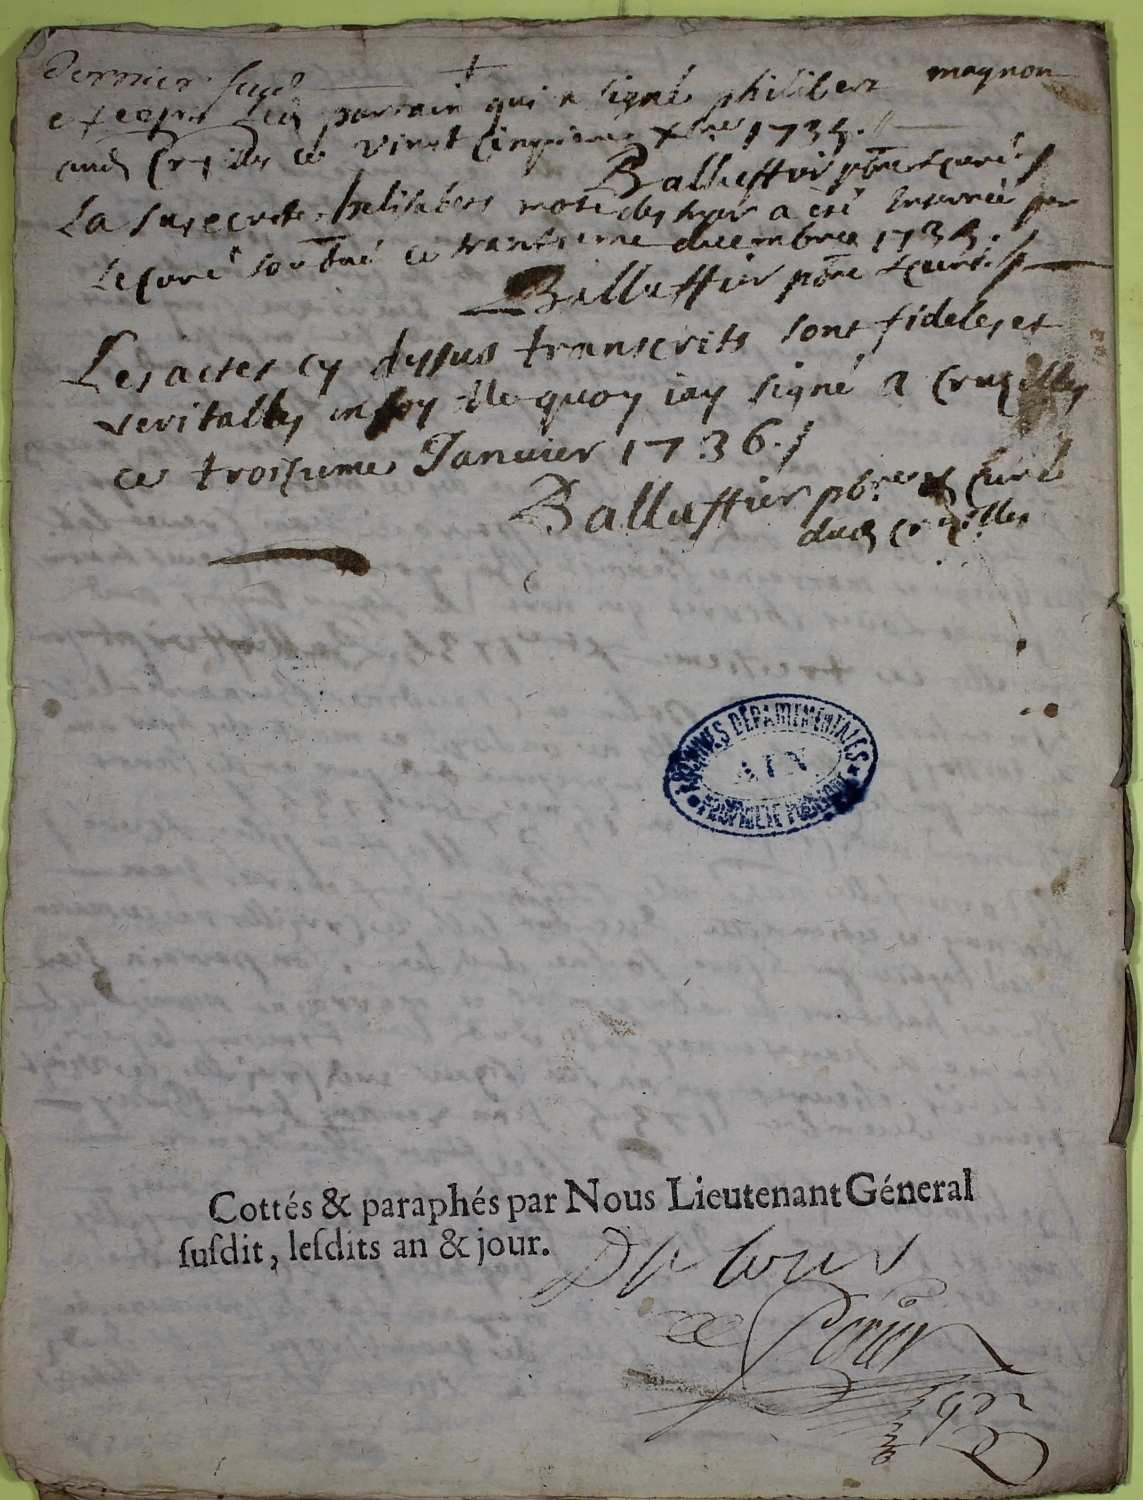 Dernier
excepté led parrain qui a signé philibert magnon
aud Cruzilles ce vint Cinquieme xbre 1735.
Balluffier pbre & curé
La susecrite helisabets a été Enterrée par
le Curé soubné ce trantieme decembre 1735.
Balluffier pbre & curé
Les actes cy dessus transcrits sont fideles et
veritables en foy de quoy jay signé a Cruzilles
ce troisieme Janvier 1736.
Balluffier pbre & Curé
dud Cruzilles
ARCHIVES DÉPARTEMENTALES
AIN
PROPRIÉTÉ PUBLIQUE
Cottés & paraphés par Nous Lieutenant Géneral
ſuſdit, leſdits an & jour.